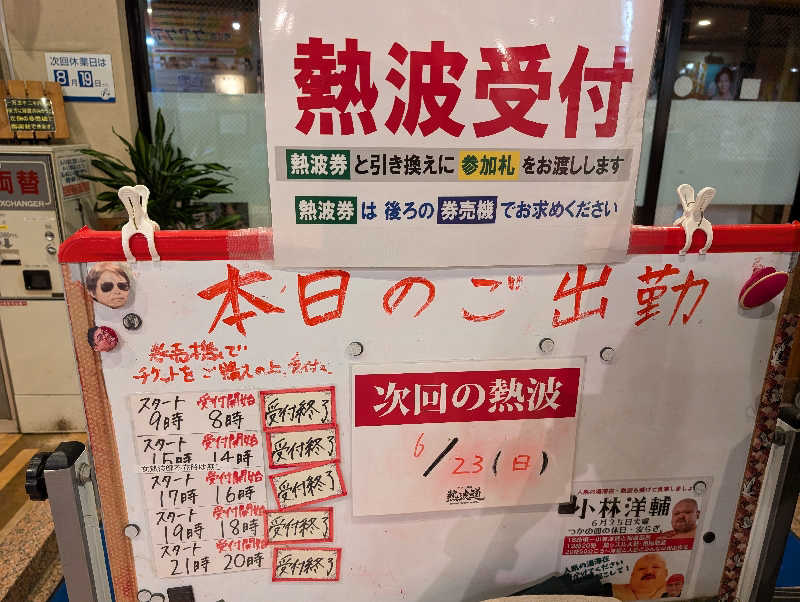 次回休業日は
8月19日
両替
EXCHANGER
熱波受付
熱波券 と引き換えに 参加札 をお渡しします
熱波券 は 後ろの 券売機 でお求めください
本日のご出勤
券売機で
チケットをご購入の上、受付へ
スタート 受付開始 受付終了
9時 8時
スタート 受付開始 受付終了
15時 14時
スタート 受付開始 受付終了
17時 16時
スタート 受付開始 受付終了
19時 18時
スタート 受付開始 受付終了
21時 20時
次回の熱波
6/23(日)
熱波道
小林洋輔
6月25日火曜
つかの間の休日・安らぎ。